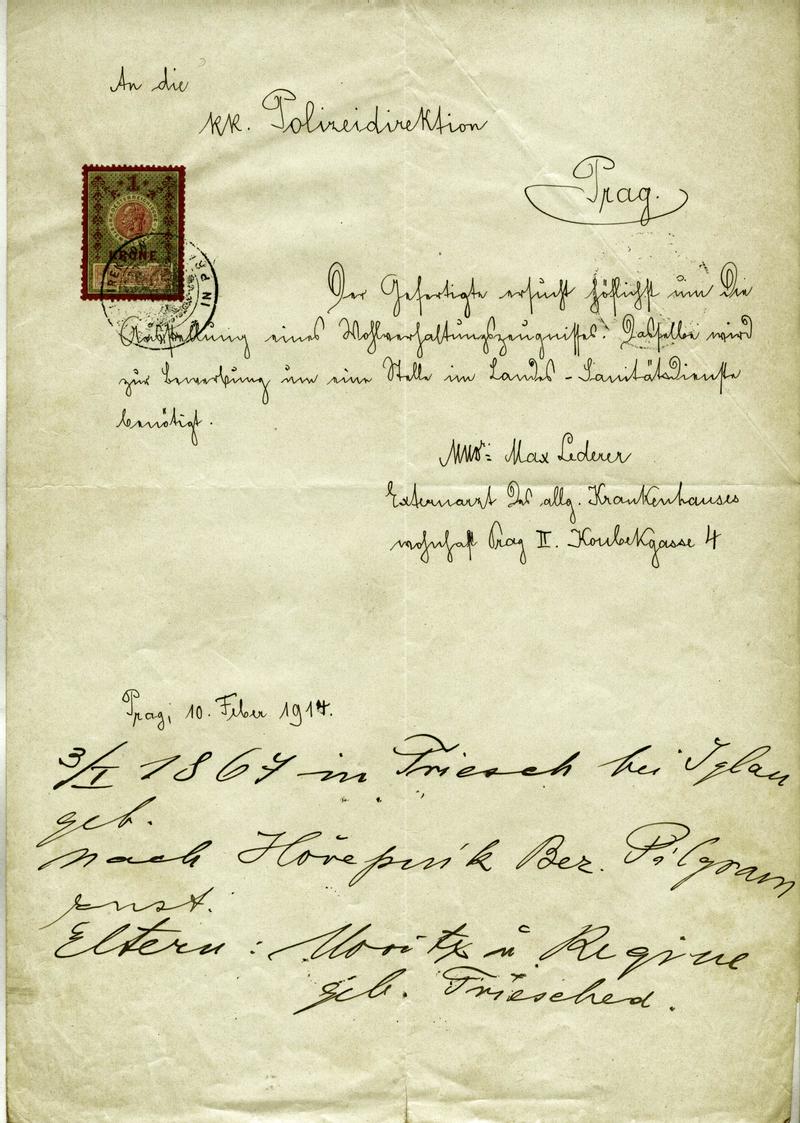 An die
kk. Polizeidirektion
Prag.
1
KRONE
IN PR
Der Gefertigte ersucht höflichst um die
Ausstellung eines Wohlverhaltungszeugnisses. Dasselbe wird
zur Bewerbung um eine Stelle im Landes-Sanitätsdienste
benötigt.
MUDr: Max Lederer
Externarzt des allg. Krankenhauses
wohnhaft Prag II. Koubekgasse 4
Prag, 10. Feber 1914.
3/I 1867 in Triesch bei Iglau
geb.
nach Hořepník Bez. Pilgram
zust.
Eltern: Moritz u. Regine
geb. Triesched.